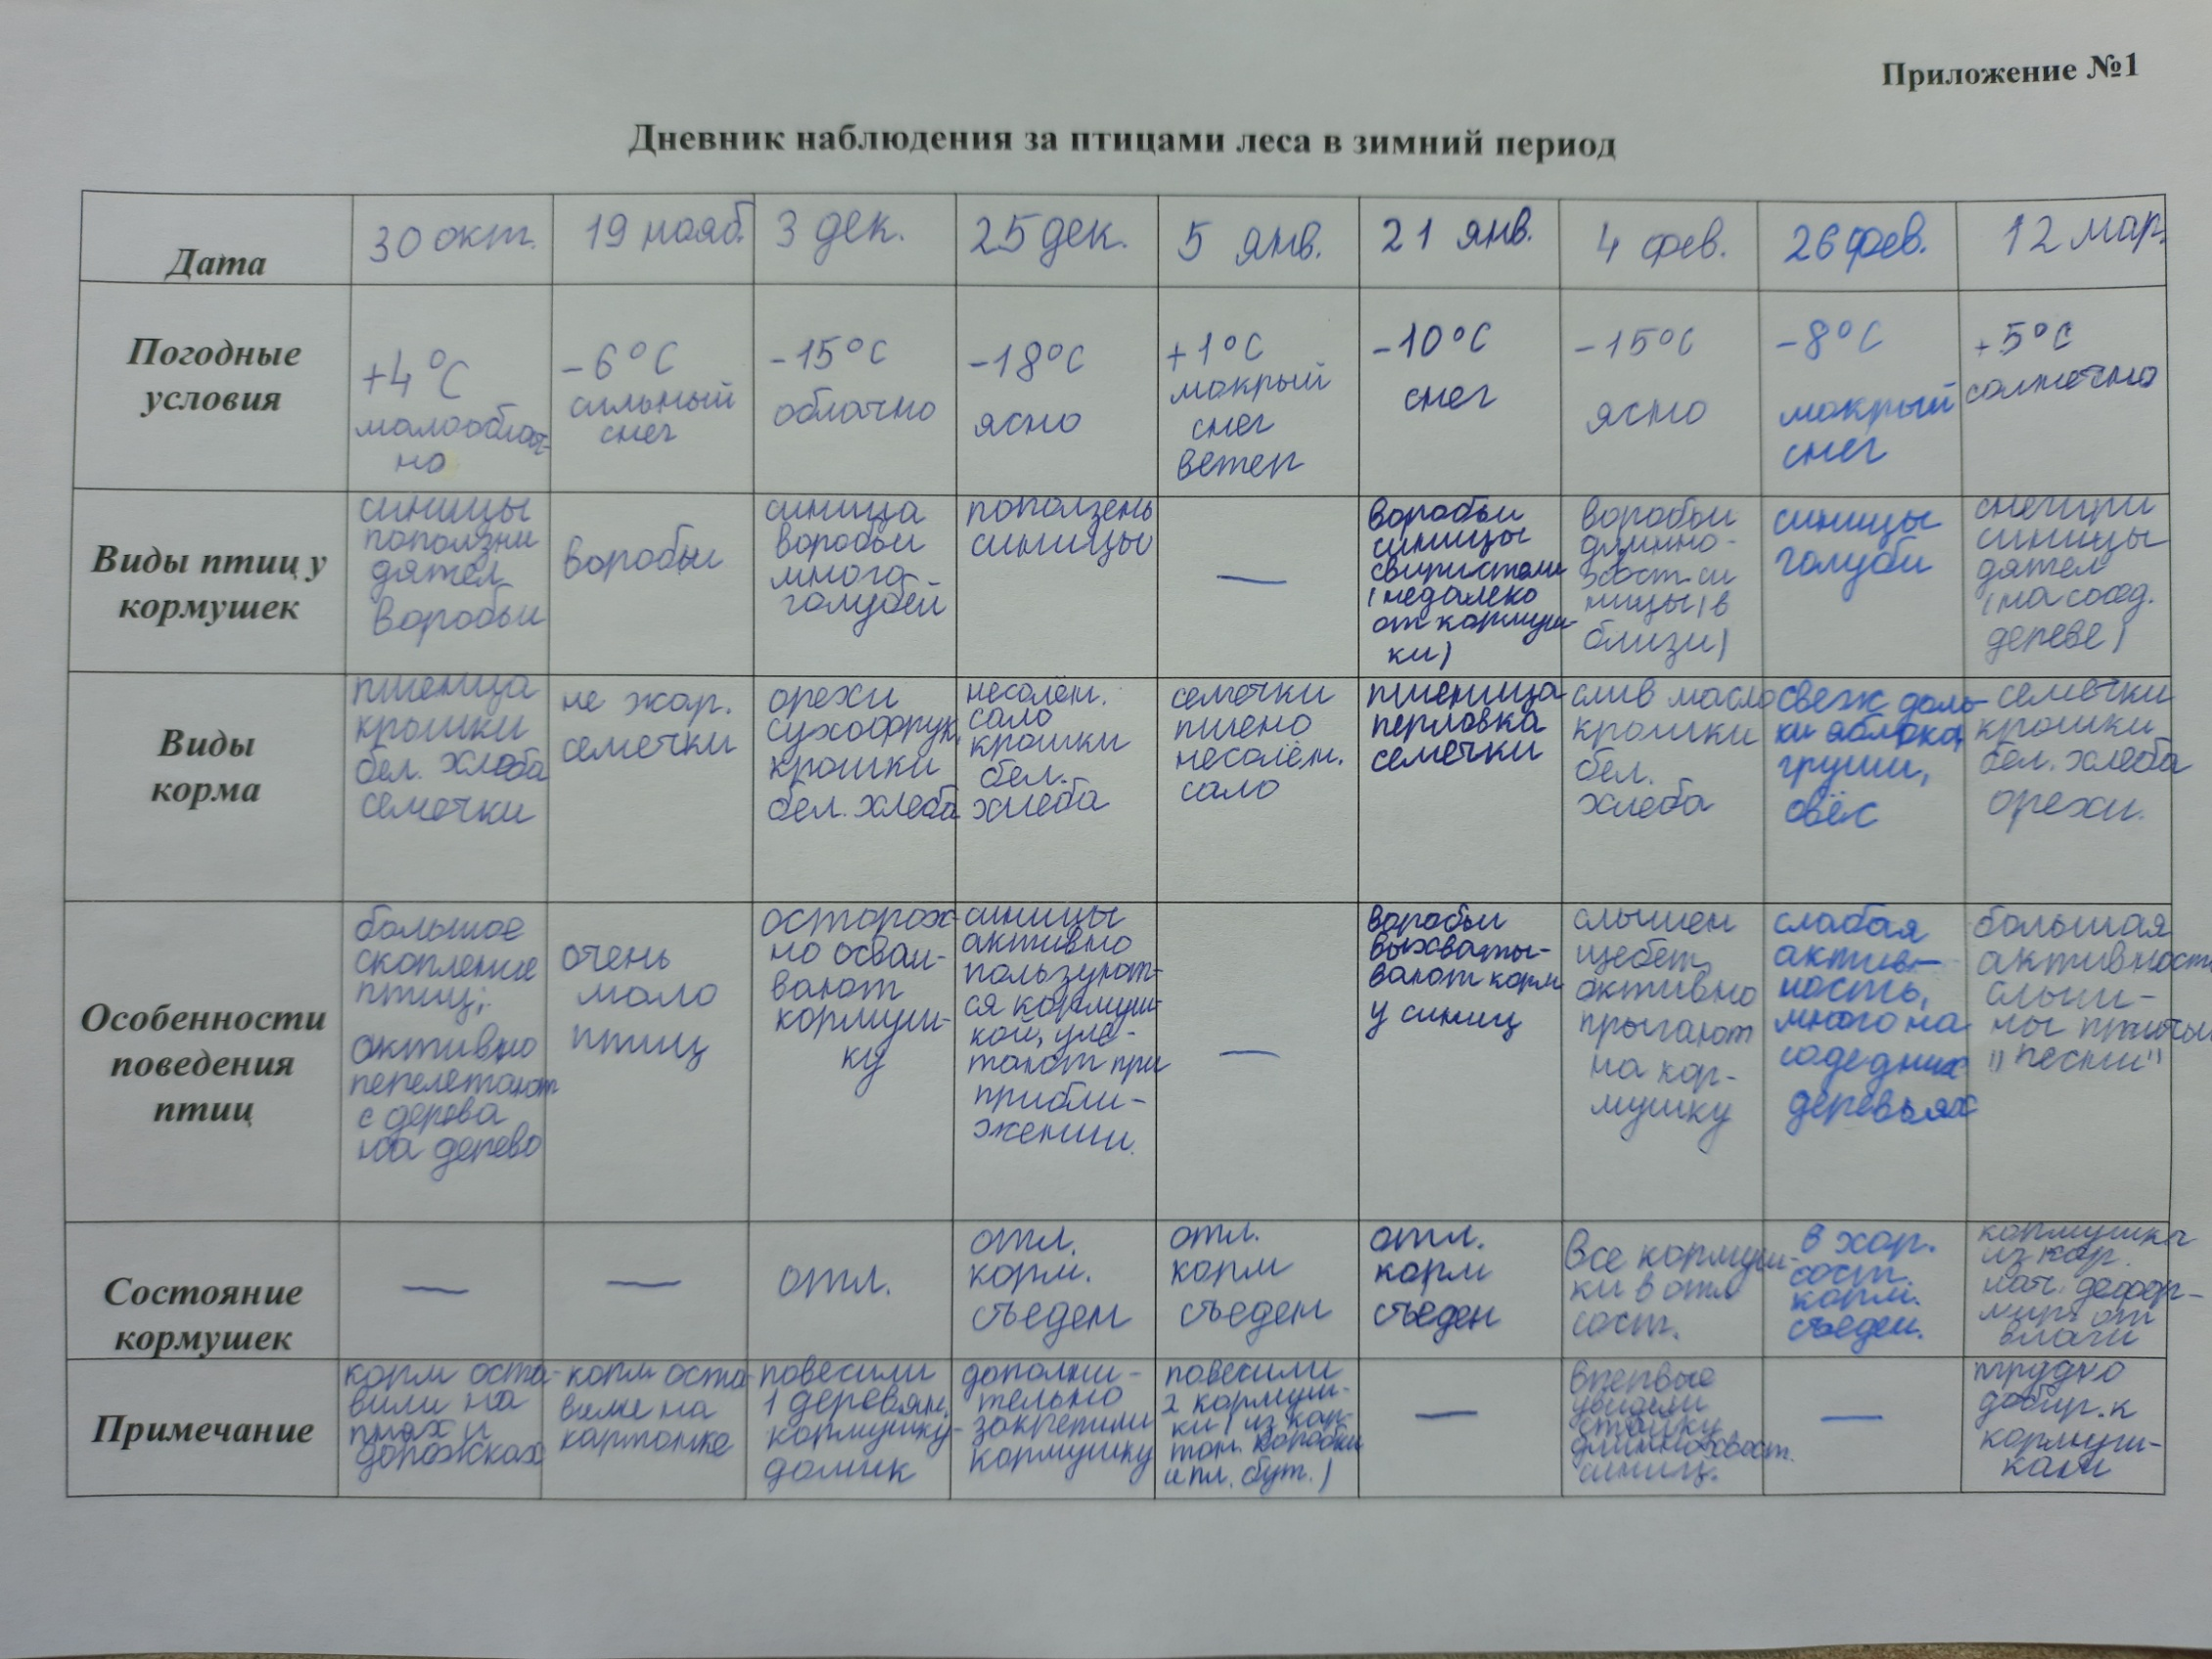 Приложение №1
Дневник наблюдения за птицами леса в зимний период
Дата
30 окт.
19 нояб.
3 дек.
25 дек.
5 янв.
21 янв.
4 фев.
26 фев.
12 мар.
Погодные
условия
+4°С
малооблач-
но
-6°С
сильный
снег
-15°С
облачно
-18°С
ясно
+1°С
мокрый
снег
ветер
-10°С
снег
-15°С
ясно
-8°С
мокрый
снег
+5°С
солнечно
Виды птиц у
кормушек
синицы
поползни
дятел
воробьи
воробьи
синица
воробьи
много
голубей
поползень
синицы
—
воробьи
синицы
свиристели
(недалеко
от кормуш-
ки)
воробьи
длинно-
хвост. си
ницы (в
близи)
синицы
голуби
снегири
синицы
дятел
(на сосед.
дереве)
Виды
корма
пшеница
крошки
бел. хлеба
семечки
не жар.
семечки
орехи
сухофрук.
крошки
бел. хлеба
несолён.
сало
крошки
бел.
хлеба
семечки
пшено
несолён.
сало
пшеница
перловка
семечки
слив масло
крошки
бел.
хлеба
свеж доль-
ки яблока,
груши,
овёс
семечки
крошки
бел. хлеба
орехи.
Особенности
поведения
птиц
большое
скопление
птиц;
активно
перелетают
с дерева
на дерево
очень
мало
птиц
осторож-
но осваи-
вают
кормуш-
ку
синицы
активно
пользуют-
ся кормуш-
кой, уле-
тают при
прибли-
жении.
—
воробьи
выхваты-
вают корм
у синиц
слышен
щебет,
активно
прыгают
на кор-
мушку
слабая
актив-
ность,
много на
соседних
деревьях
большая
активность
слыш-
ны птичьи
"песни"
Состояние
кормушек
—
—
отл.
отл.
корм.
съеден
отл.
корм
съеден
отл.
корм
съеден
все кормуш-
ки в отл
сост.
в хор.
сост.
корм.
съеден.
кормушка
из кар.
нач. дефор-
мир. от
влаги
Примечание
корм оста-
вили на
пнях и
дорожках
корм оста-
вили на
картонке
повесили
1 деревян.
кормушку-
домик
дополни-
тельно
закрепили
кормушку
повесили
2 кормуш-
ки (из кар-
тон. коробки
и пл. бут.)
—
впервые
увидели
стайку
длиннохвост.
синиц.
—
трудно
добир. к
кормуш-
кам